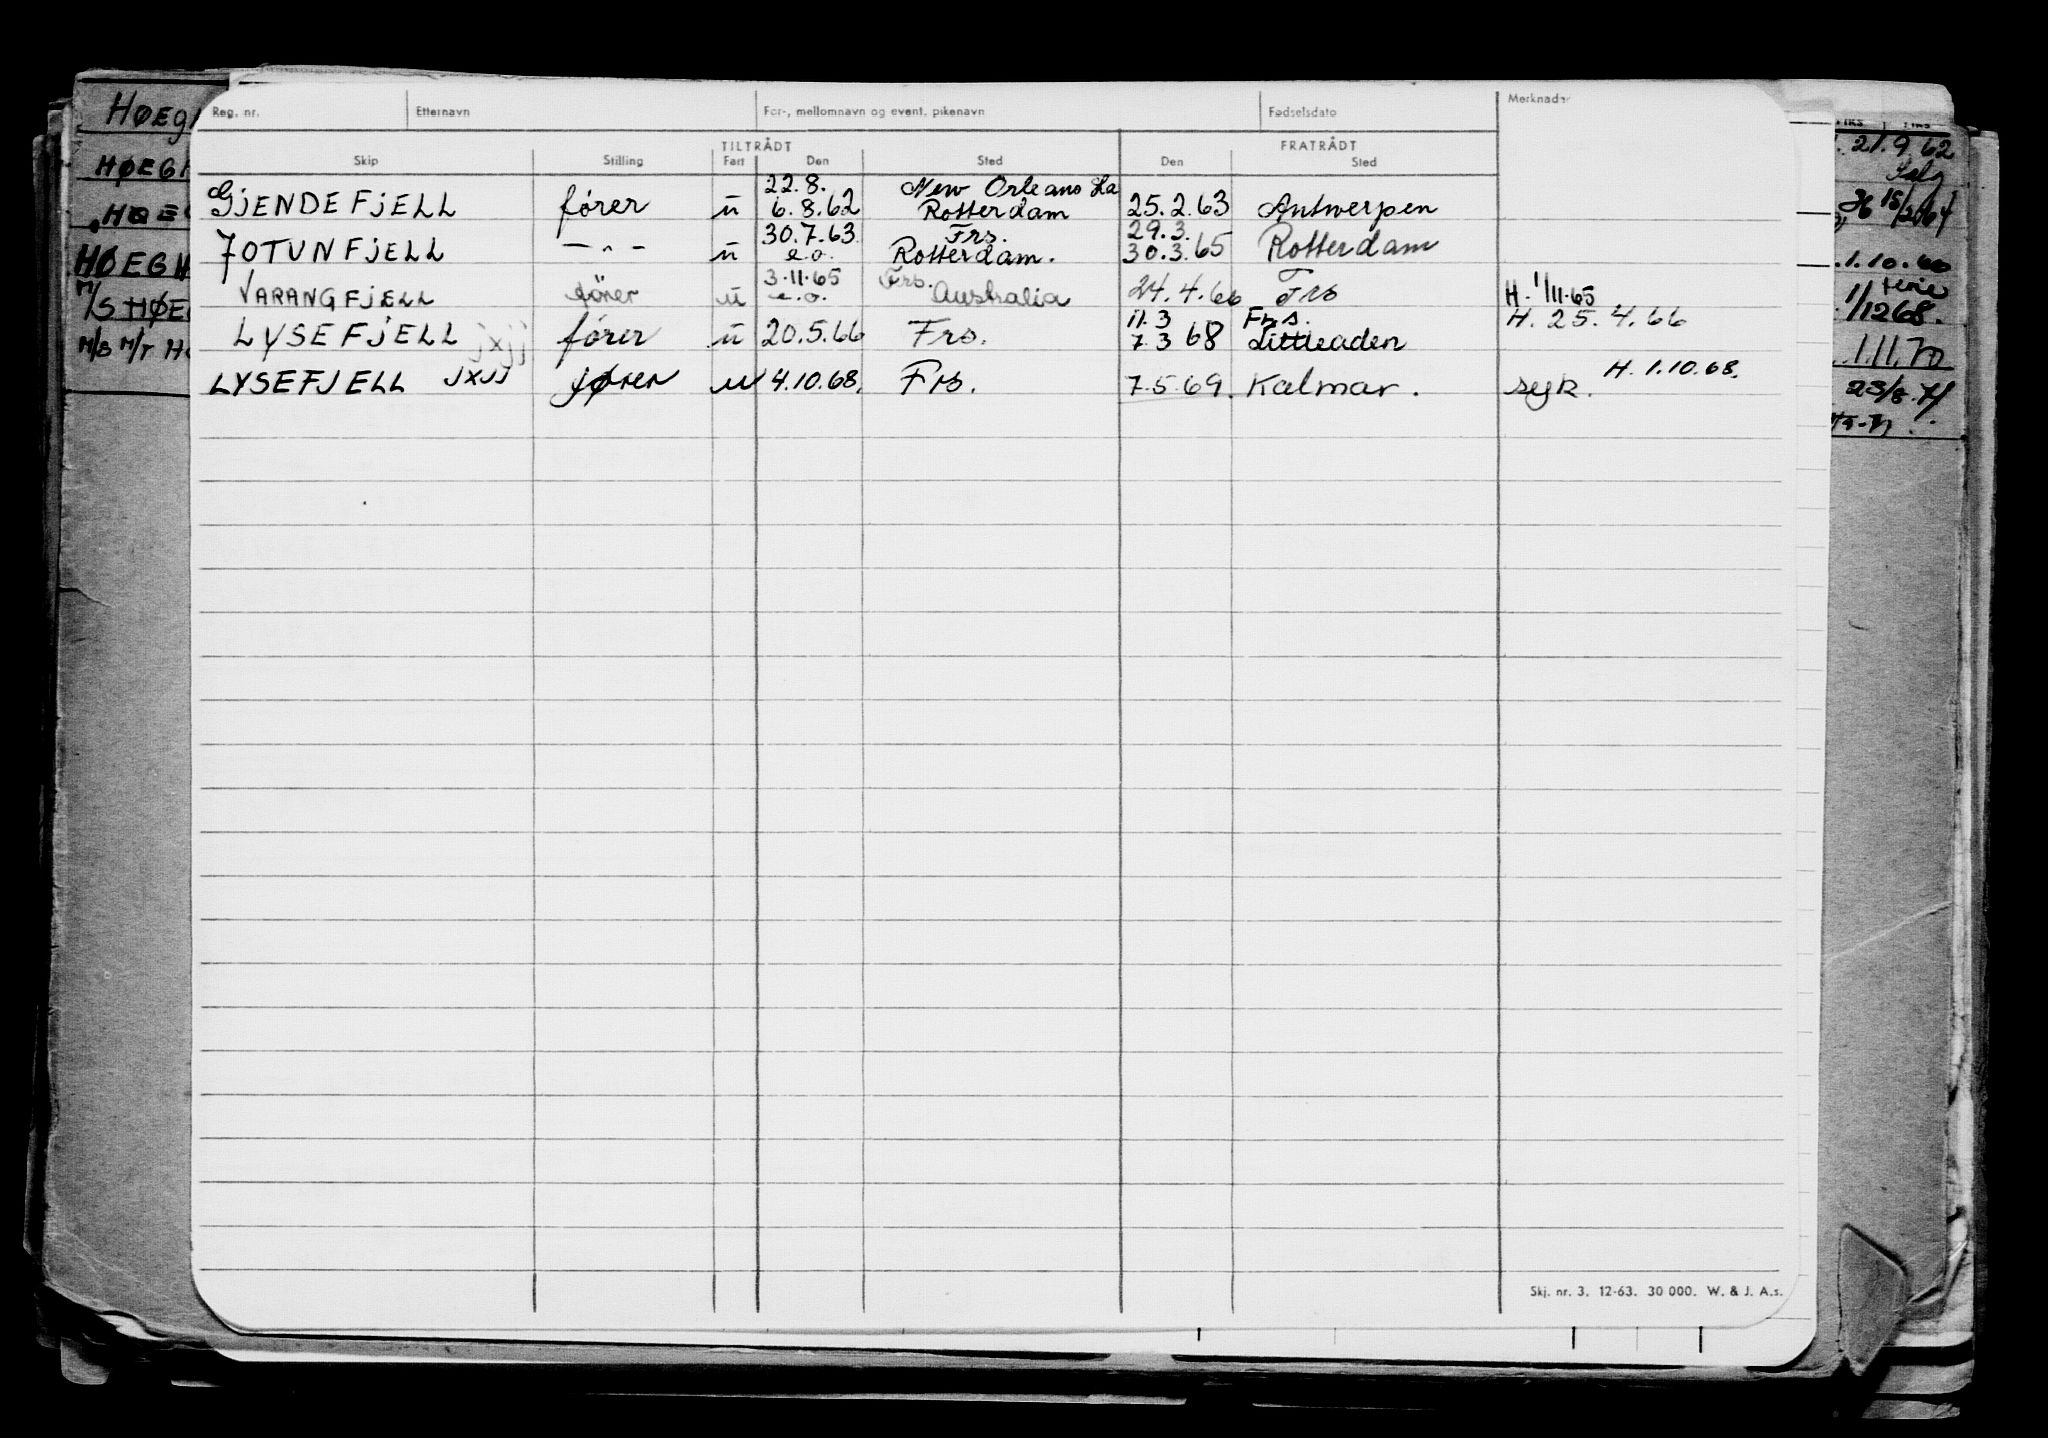 Reg. nr. Etternavn For-, mellomnavn og event. pikenavn Fødselsdato Merknader
TILTRÅDT FRATRÅDT
Skip Stilling Fart Den Sted Den Sted
22.8. New Orleans La
GJENDEFJELL fører u 6.8.62 Rotterdam 25.2.63 Antwerpen
30.7.63 Frs. 29.3.
JOTUNFJELL — " — u e.o. Rotterdam. 30.3.65 Rotterdam
3.11.65 Frs.
VARANGFJELL fører u e.o. Australia 24.4.66 Frs H. 1/11.65
11.3 Frs. H. 25.4.66
LYSEFJELL jxjj fører u 20.5.66 Frs. 7.3 68 Littleaden
H. 1.10.68.
LYSEFJELL JXJJ fører u 4.10.68. Frs. 7.5.69. Kalmar. syk.
Skj. nr. 3. 12-63. 30 000. W. & J. A.s.
HØEGH
HØEGH
HØEG
HØEGH
M/S HØEG
M/S M/T HØ
21.9.62
Salg
15/2064
1.10.66
ferie
1/1268.
1.11.70
23/8.71